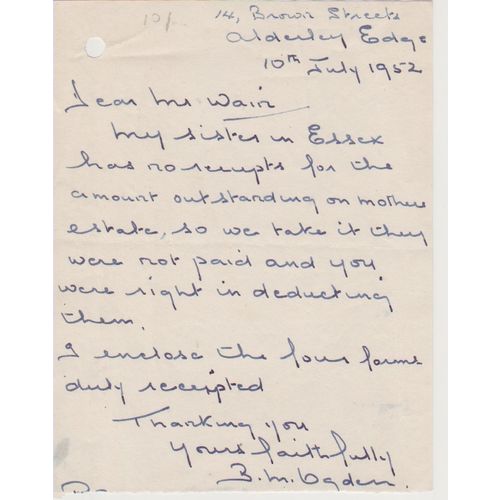 10/-
14, Brown Streets
Alderley Edge
10th July 1952
Dear Mr Wain
My sister in Essex
has no receipts for the
amount outstanding on mothers
estate, so we take it they
were not paid and you
were right in deducting
them.
I enclose the four forms
duly receipted
Thanking you
Yours faithfully
B.M. Ogden.